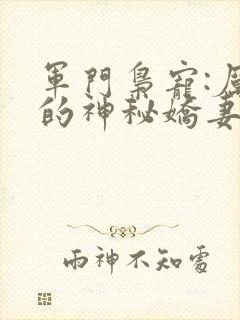 軍門梟寵:
的神秘嬌妻
雨神不知處